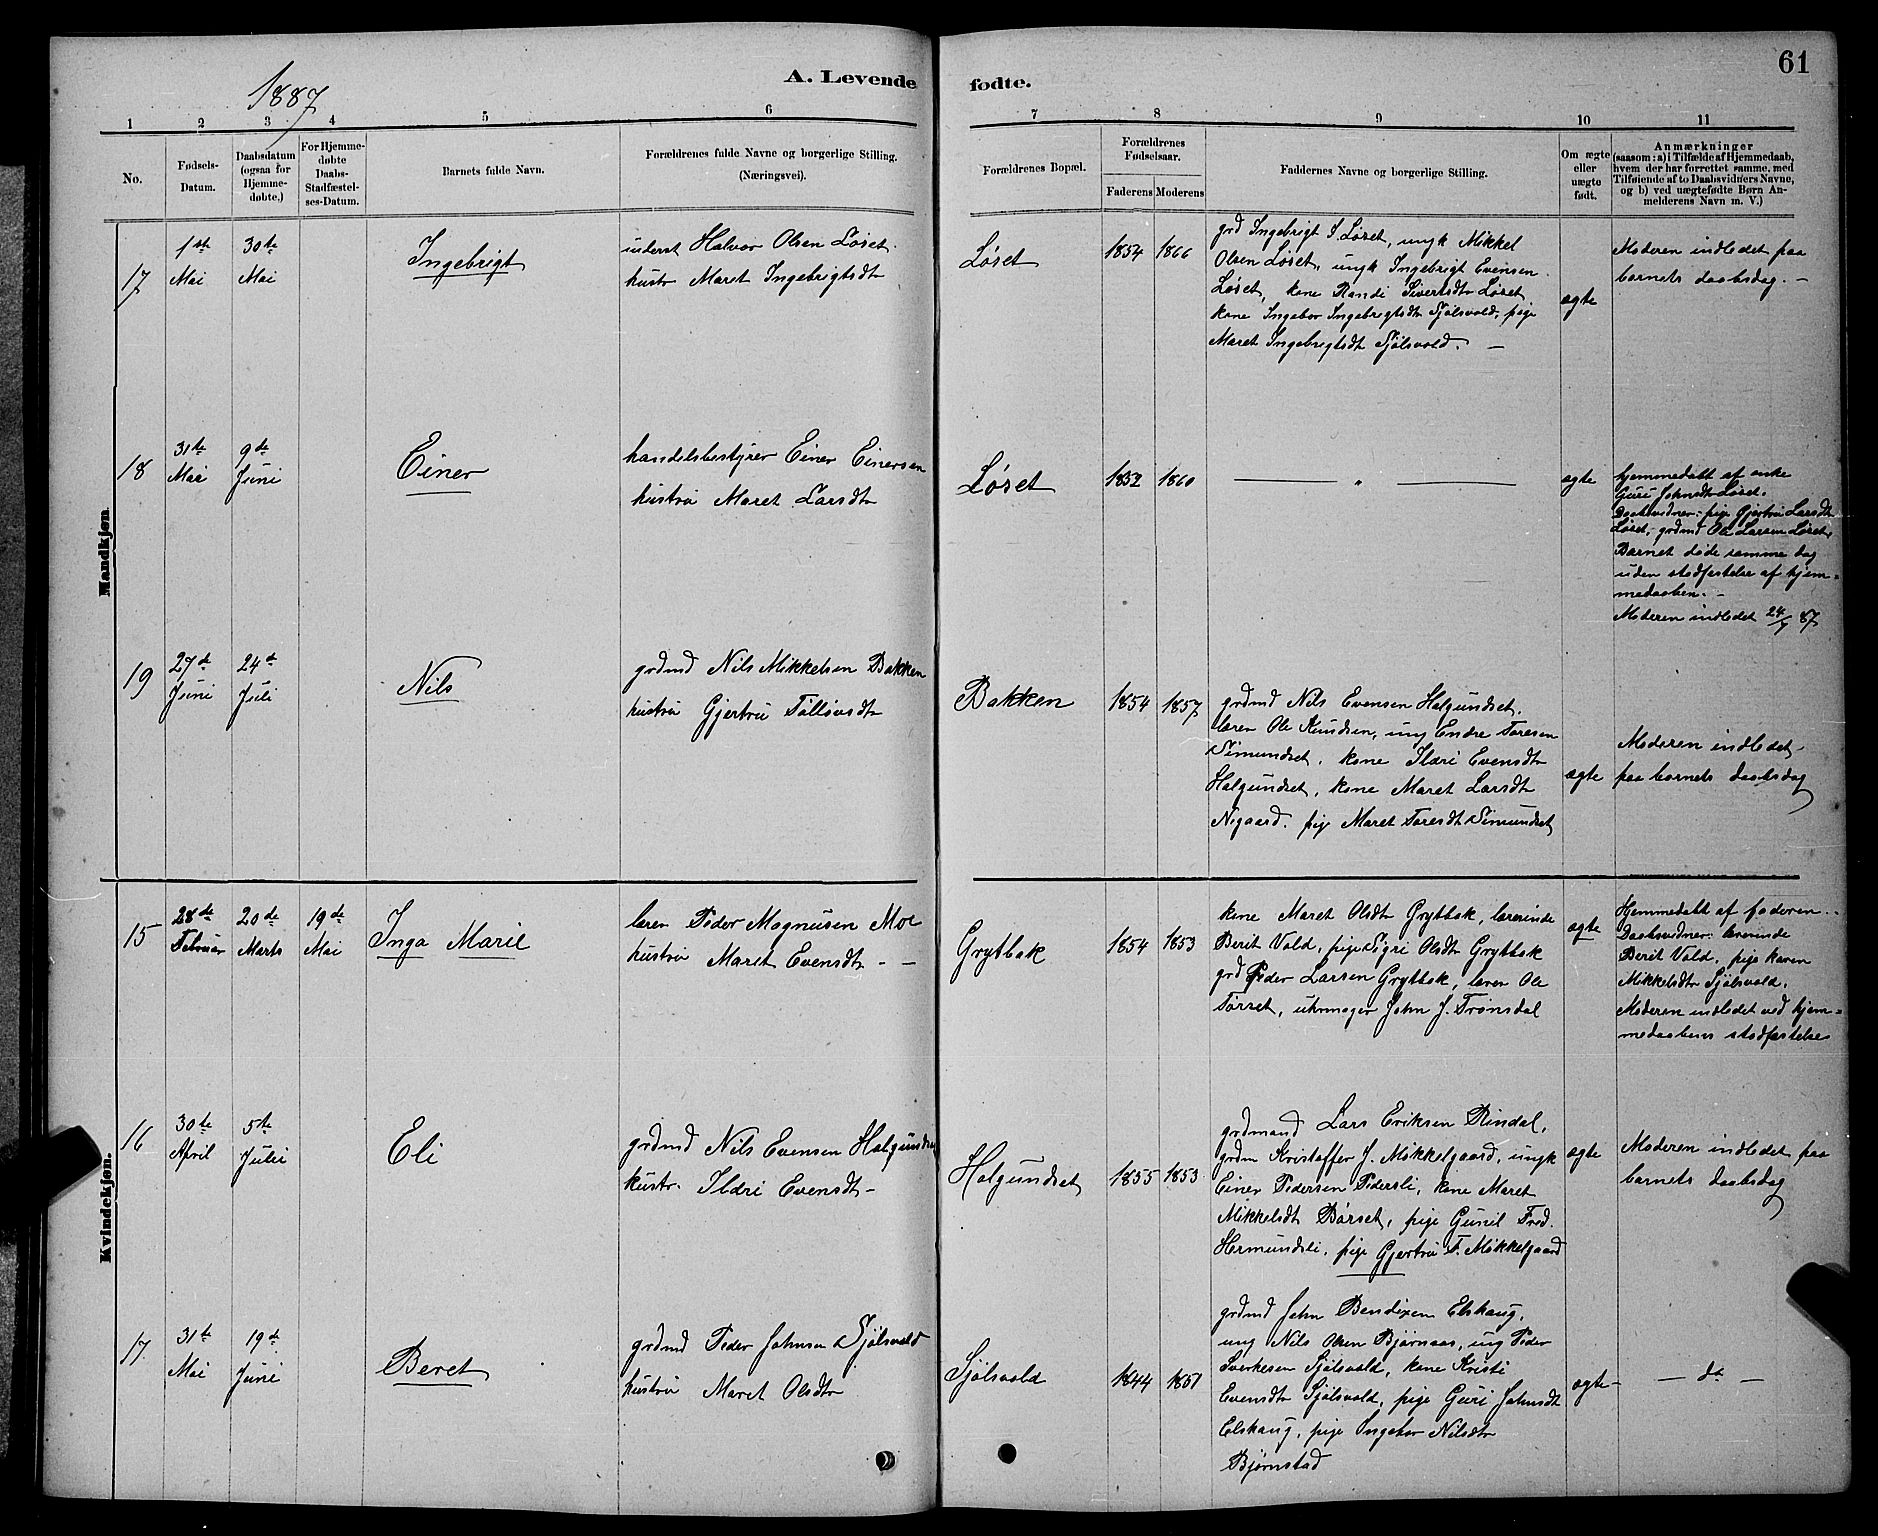 61
1887
A. Levende fødte.
1 2 3 4 5 6 7 8 9 10 11
No.
Fødsels-
Datum.
Daabsdatum
(ogsaa for
Hjemme-
døbte.)
For Hjemme-
døbte
Daabs-
Stadfæstel-
ses-Datum.
Barnets fulde Navn.
Forældrenes fulde Navne og borgerlige Stilling.
(Næringsvei).
Forældrenes Bopæl.
Forældrenes
Fødselsaar.
Faderens Moderens
Faddernes Navne og borgerlige Stilling.
Om ægte
eller
uægte
født.
Anmærkninger
(saasom: a) i Tilfælde af Hjemmedaab,
hvem der har forrettet samme, med
Tilføiende af to Daabsvidners Navne,
og b) ved uægtefødte Børn An-
melderens Navn m. V.)
Mandkjøn
17
1ste
Mai
30te
Mai
Ingebrigt
inderst Halvor Olsen Løset
hustr Maret Ingebrigtsdtr
Løset
1854 1866
grd Ingebrigt S. Løset, ungk Mikkel
Olsen Løset, ungk Ingebrigt Evensen
Løset, kone Randi Sivertsdtr Løset
kone Ingebor Ingebrigtsdtr Sjølsvold, pige
Maret Ingebrigtsdt Sjølsvold. –
ægte
Moderen indledet paa
barnets daabsdag. –
18
31te
Mai
9de
Juni
Einer
handelsbestyrer Einer Einersen
hustru Maret Larsdtr
Løset
1852 1860
— " —
ægte
hjemmedøbt af enke
Guri Johnsdtr Løset.
Daabsvidner: pige Gjertru Larsdtr
Løset, grdmd Ole Larsen Løset.
Barnet døde samme dag
uden stadfæstelse af hjem-
medaaben. –
Moderen indledet 24/7 87
19
27de
Juni
24de
Juli
Nils
grdmd Nils Mikkelsen Bakken
hustru Gjertru Tølløvsdtr
Bakken
1854 1857
grdmd Nils Evensen Halgundset,
læren Ole Knudsen, ung Endre Toresen
Simundset, kone Ildri Evensdtr
Halgundset, kone Maret Larsdtr
Nigaard. pige Maret Toresdt Simundset
ægte
Moderen indledet
paa barnets daabsdag
Kvindekjøn.
15
28de
Februar
20de
Marts
19de
Mai
Inga Marie
læren Peder Magnusen Moe
hustru Maret Evensdtr – –
Grytbak
1854 1853
kone Maret Olsdtr Grytbak, lærerinde
Berit Vold, pige Sigri Olsdt Grytbak
grd Peder Larsen Grytbak, læren Ole
Torset, uhrmager John J. Trønsdal
ægte
Hjemmedøbt af faderen.
Daabsvidner: lærerinde
Berit Vold, pige Karen
Mikkelsdtr Sjølsvold.
Moderen indledet ved hjem-
medaabens stadfæstelse
16
30te
April
5te
Juli
Eli
grdmd Nils Evensen Halgundset
hustr. Ildri Evensdt –
Halgundset
1855 1853
grdmand Lars Eriksen Rindal,
grdm Kristoffer J. Mikkelgaard, ungk
Einer Pedersen Pedersli, kone Maret
Mikkelsdt Børset, pige Gunil Fred.
Hermundsli, pige Gjertru F. Mikkelgaard
ægte
Moderen indledet paa
barnets daabsdag
17.
31te
Mai
19de
Juni
Beret
grdmd Peder Johnsen Sjølsvold
hustru Maret Olsdtr
Sjølsvold
1844 1851
grdmd John Bendixen Elshaug,
ung Nils Olsen Bjørnaas, ung Peder
Sverkesen Sjølsvold, kone Kristi
Evensdtr Sjølsvold, pige Guri Johnsdt
Elshaug, pige Ingebor Nilsdtr
Bjørnstad
ægte –
— do —